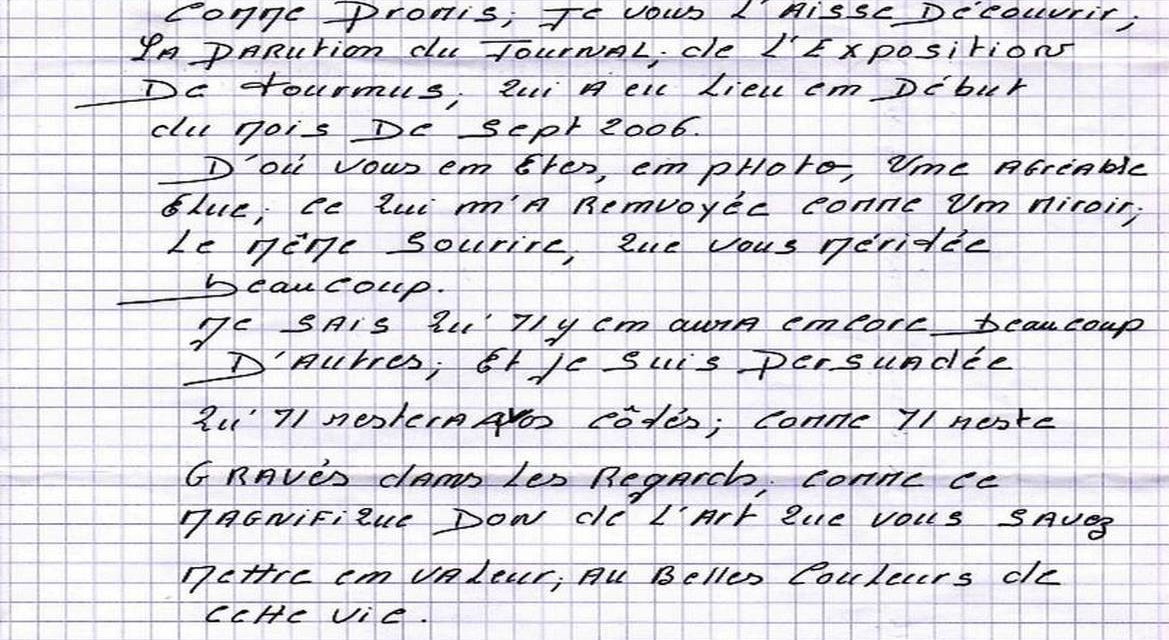 Comme Promis; Je vous l'Aisse Découvrir;
LA PARution du JournAL, de l'Expositions
De tournus; Qui A eu Lieu em Début
du Mois De Sept 2006.
D'où vous em Etes, em pHoto, Ume AGréAble
Elue; ce Qui m'A Remvoyée comme Um Miroir;
Le MêMe Sourire, Que vous Méritée
beaucoup.
Je SAis Qu'Il y em aurA emcore beaucoup
D'Autres; Et je suis PersuAdée
Qu'Il resterA A vos côtés; comme Il reste
GRAvés dAms Les RegArds, comme ce
MAGNifiQue Don de L'Art Que vous SAvez
Mettre em vALeur; Au Belles Couleurs de
cette vie.